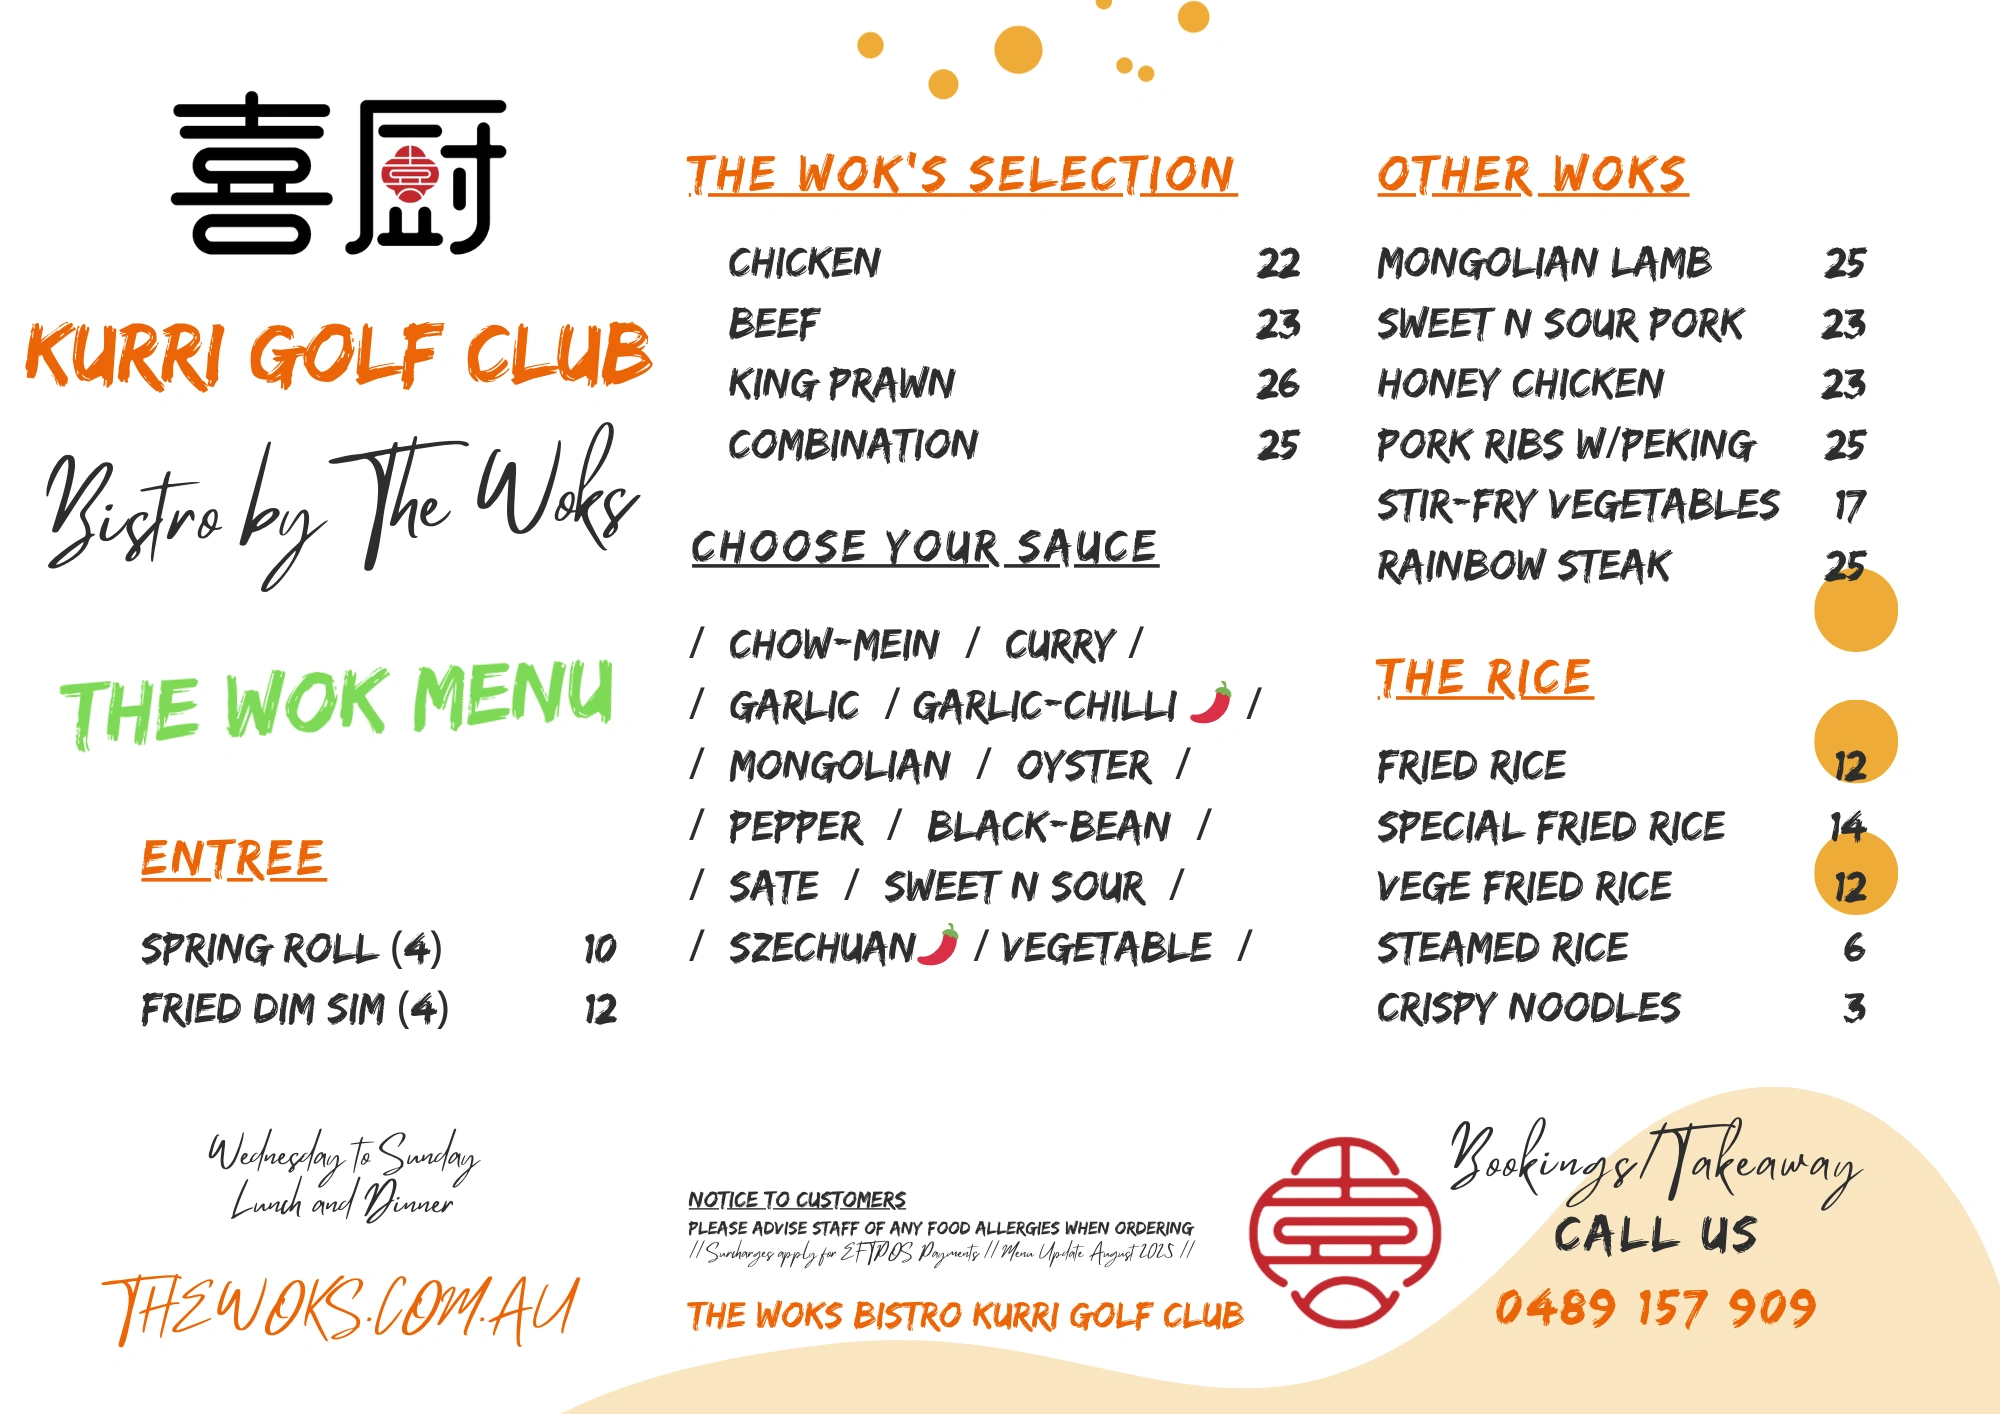 喜厨
KURRI GOLF CLUB
Bistro by The Woks
THE WOK MENU
ENTREE
SPRING ROLL (4) 10
FRIED DIM SIM (4) 12
Wednesday to Sunday
Lunch and Dinner
THEWOKS.COM.AU
THE WOK'S SELECTION
CHICKEN 22
BEEF 23
KING PRAWN 26
COMBINATION 25
CHOOSE YOUR SAUCE
/ CHOW-MEIN / CURRY /
/ GARLIC / GARLIC-CHILLI 🌶 /
/ MONGOLIAN / OYSTER /
/ PEPPER / BLACK-BEAN /
/ SATE / SWEET N SOUR /
/ SZECHUAN🌶 / VEGETABLE /
NOTICE TO CUSTOMERS
PLEASE ADVISE STAFF OF ANY FOOD ALLERGIES WHEN ORDERING
// Surcharges apply for EFTPOS Payments // Menu Update August 2025 //
THE WOKS BISTRO KURRI GOLF CLUB
OTHER WOKS
MONGOLIAN LAMB 25
SWEET N SOUR PORK 23
HONEY CHICKEN 23
PORK RIBS W/PEKING 25
STIR-FRY VEGETABLES 17
RAINBOW STEAK 25
THE RICE
FRIED RICE 12
SPECIAL FRIED RICE 14
VEGE FRIED RICE 12
STEAMED RICE 6
CRISPY NOODLES 3
Bookings/Takeaway
CALL US
0489 157 909